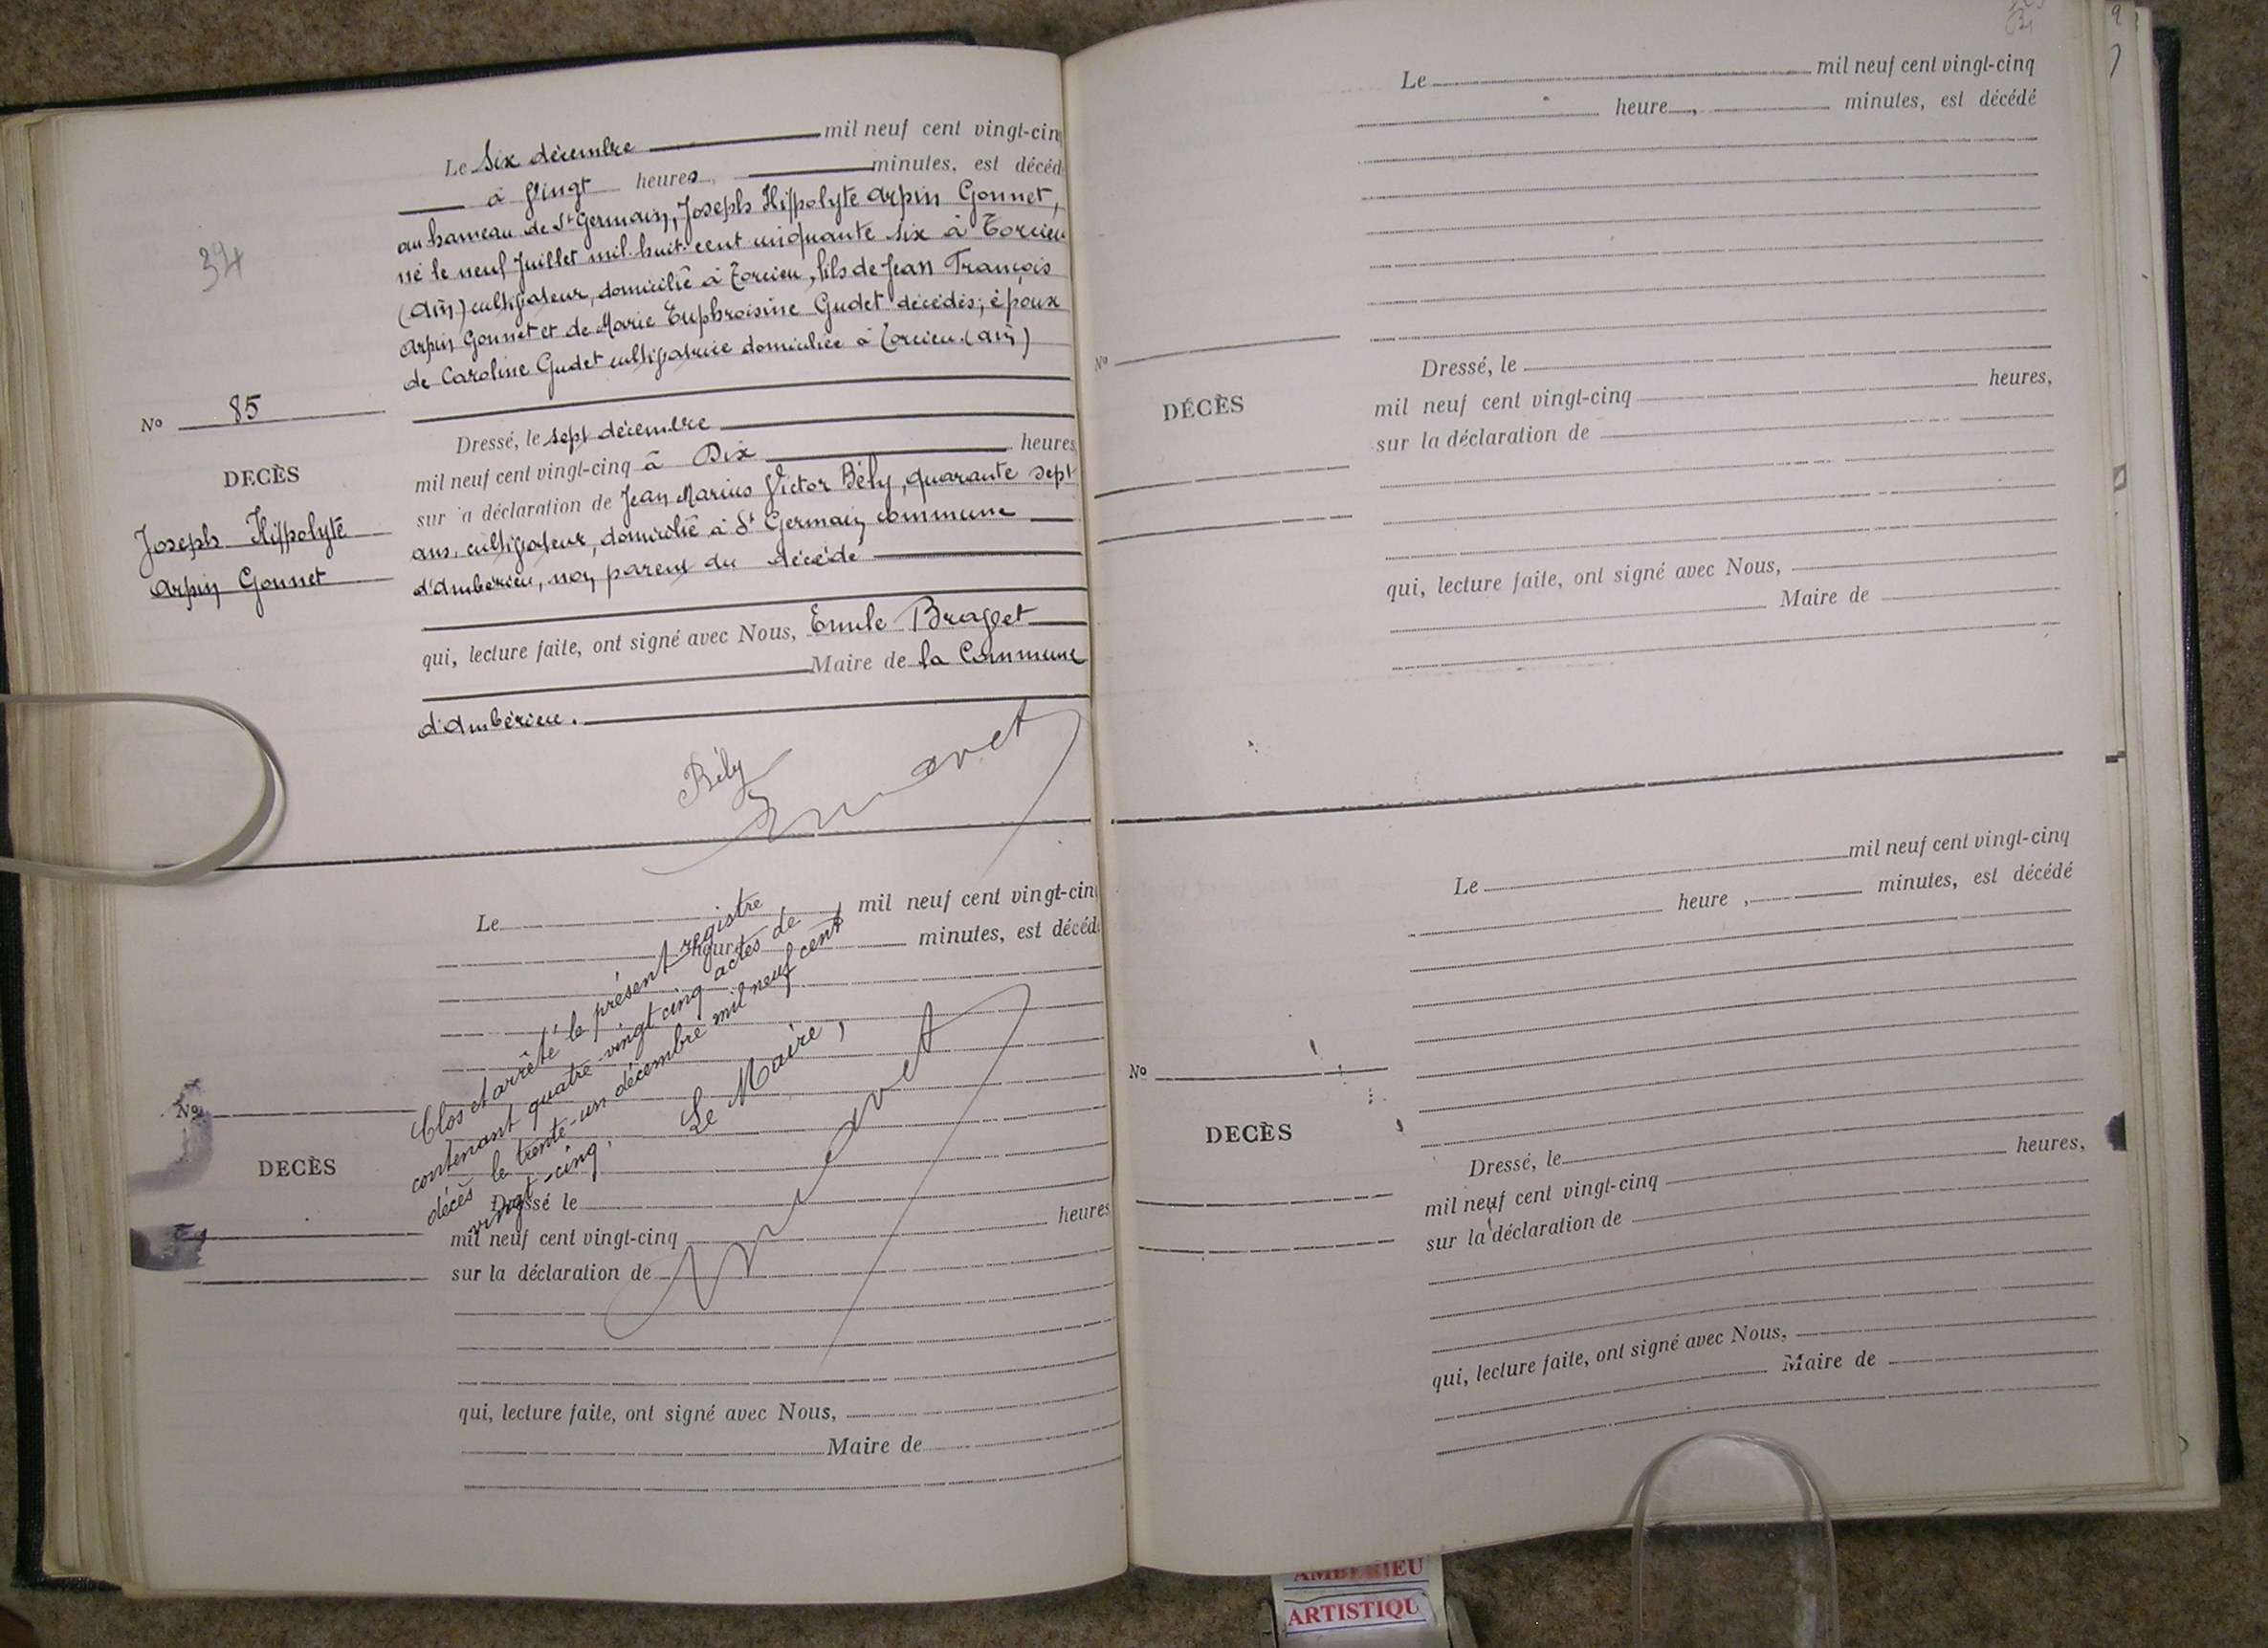 34
Le Six décembre mil neuf cent vingt-cinq
à Vingt heures, minutes, est décéd
au hameau de St Germain, Joseph Hippolyte Arpin Gonnet,
né le neuf Juillet mil huit cent cinquante six à Torcieu
(Ain) cultivateur, domicilié à Torcieu, fils de Jean François
Arpin Gonnet et de Marie Euphroisine Gudet décédés; époux
de Caroline Gudet cultivatrice domiciliée à Torcieu. (Ain)
No 85
DECÈS
Joseph Hippolyte
Arpin Gonnet
Dressé, le sept décembre
mil neuf cent vingt-cinq à Dix heures
sur la déclaration de Jean Marius Victor Bély, quarante sept
ans, cultivateur, domicilié à St Germain commune
d'Ambérieu, non parent du décédé
qui, lecture faite, ont signé avec Nous, Emile Bravet
Maire de la Commune
d'Ambérieu.
Bély
E Bravet
Le mil neuf cent vingt-cinq
heure minutes, est décéd
Clos et arrêté le présent registre
contenant quatre-vingt cinq actes de
décès le trente-un décembre mil neuf cent
vingt-cinq.
Le Maire,
E Bravet
No
DECÈS
Dressé le
mil neuf cent vingt-cinq heures
sur la déclaration de
qui, lecture faite, ont signé avec Nous,
Maire de
Le mil neuf cent vingt-cinq
heure, minutes, est décédé
No
DÉCÈS
Dressé, le
mil neuf cent vingt-cinq heures,
sur la déclaration de
qui, lecture faite, ont signé avec Nous,
Maire de
Le mil neuf cent vingt-cinq
heure , minutes, est décédé
No
DECÈS
Dressé, le
mil neuf cent vingt-cinq heures,
sur la déclaration de
qui, lecture faite, ont signé avec Nous,
Maire de
AMBERIEU
ARTISTIQU